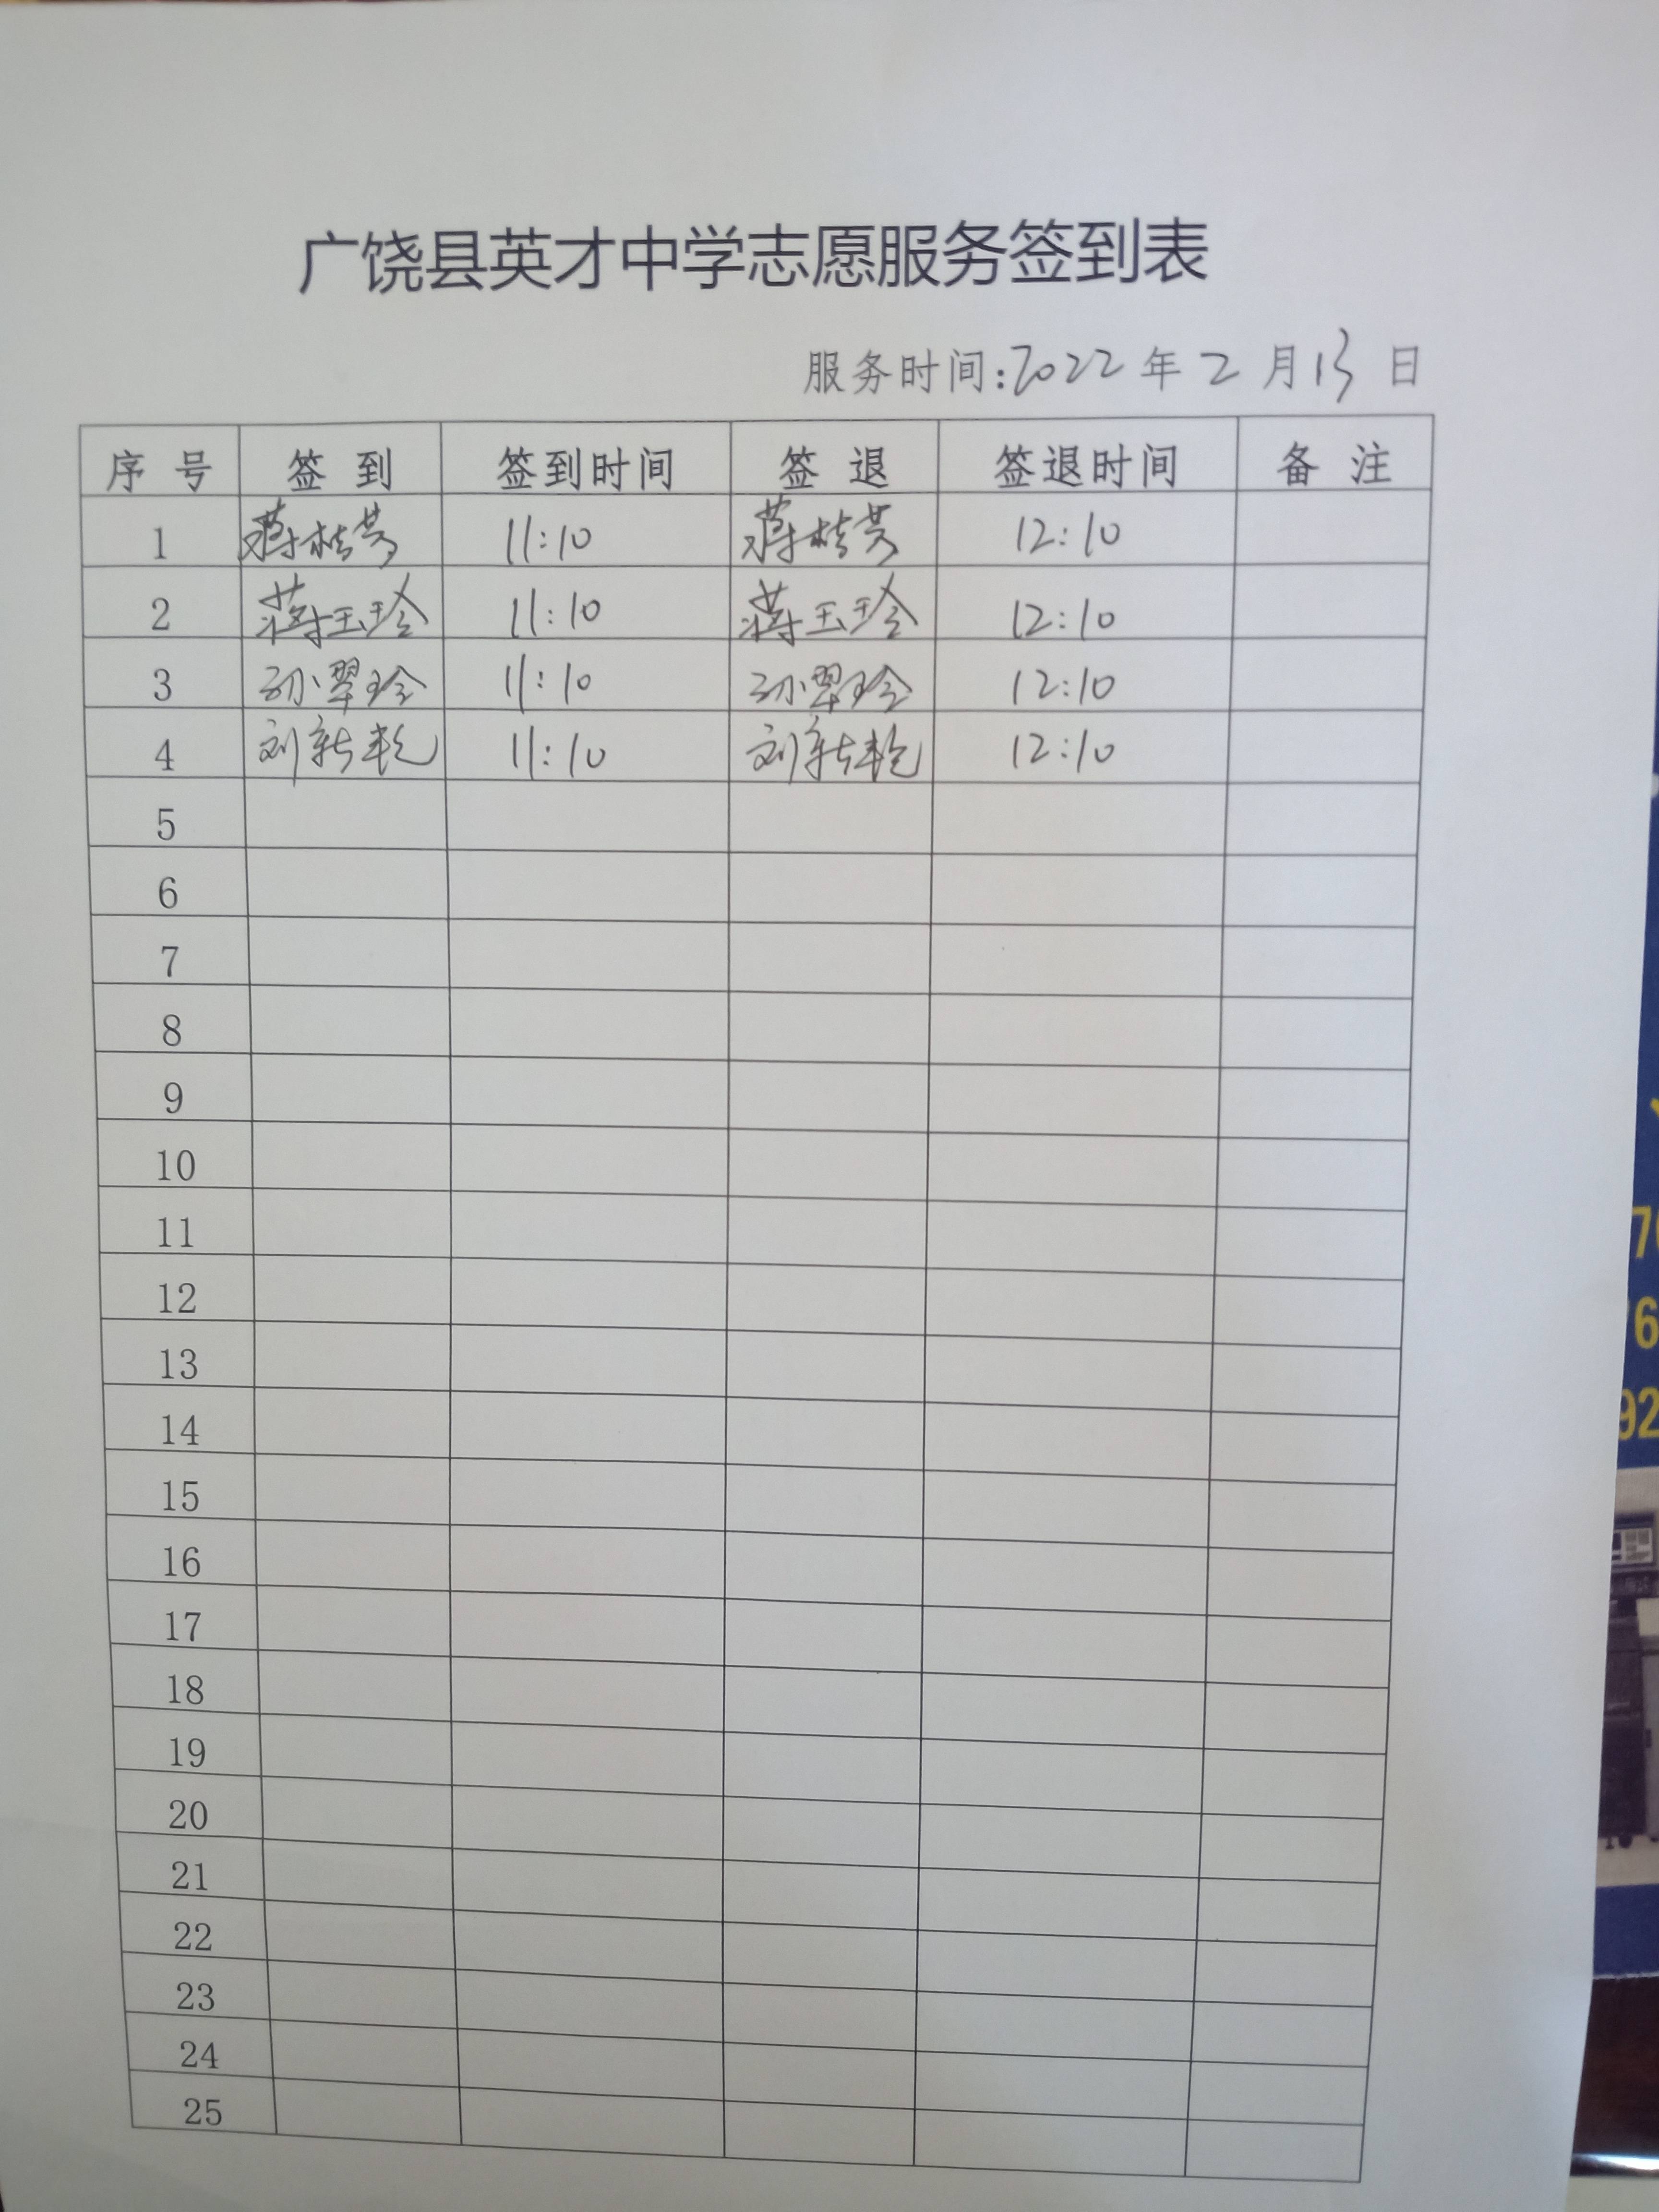 广饶县英才中学志愿服务签到表
服务时间:2022年2月13日
序号 签到 签到时间 签退 签退时间 备注
1 蒋桂芳 11:10 蒋桂芳 12:10
2 蒋玉玲 11:10 蒋玉玲 12:10
3 孙翠玲 11:10 孙翠玲 12:10
4 刘新艳 11:10 刘新艳 12:10
5
6
7
8
9
10
11
12
13
14
15
16
17
18
19
20
21
22
23
24
25